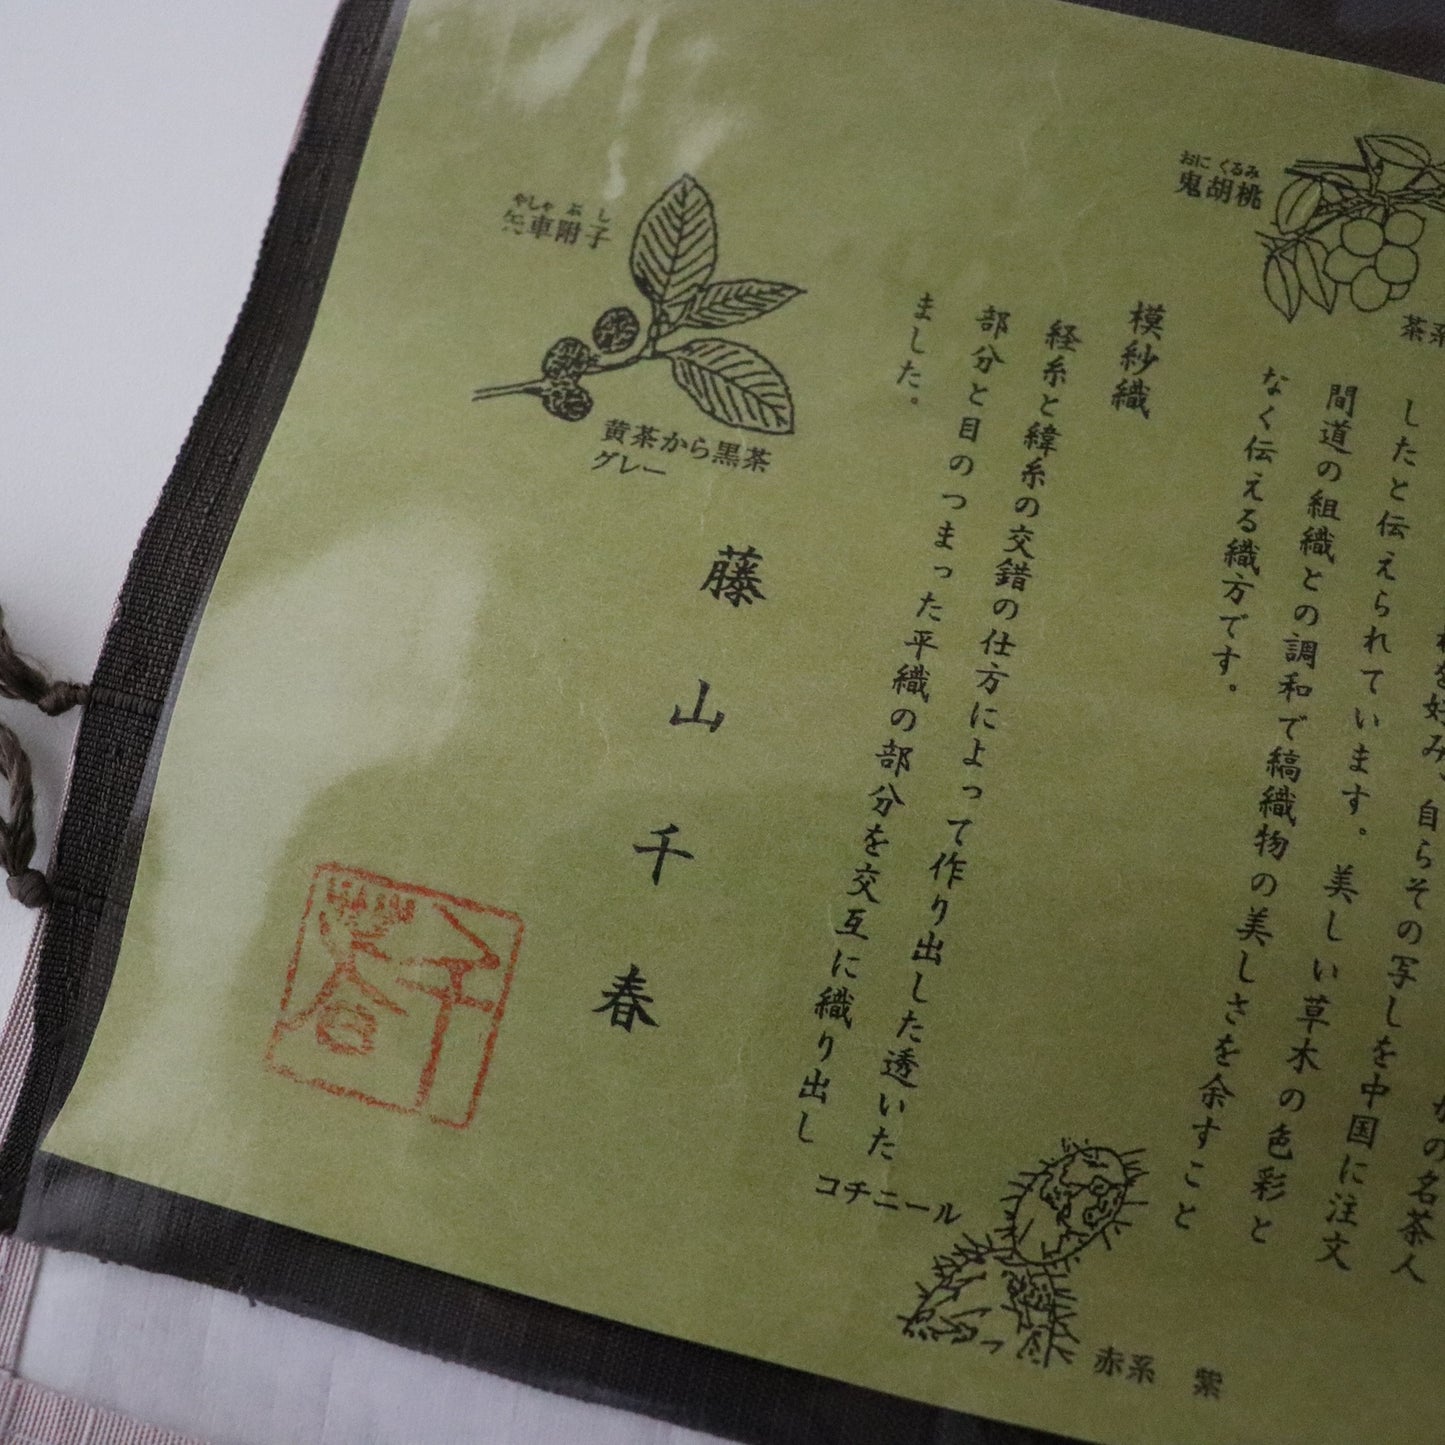 おに くるみ
鬼胡桃
好み、自らその写しを中国に注文
したと伝えられています。美しい草木の色彩と
間道の組織との調和で縞織物の美しさを余すこと
なく伝える織方です。
模紗織
経糸と緯糸の交錯の仕方によって作り出した透いた
部分と目のつまった平織の部分を交互に織り出し
ました。
やしゃ ぶし
車附子
黄茶から黒茶
グレー
藤山千春
千春
コチニール
赤系 紫